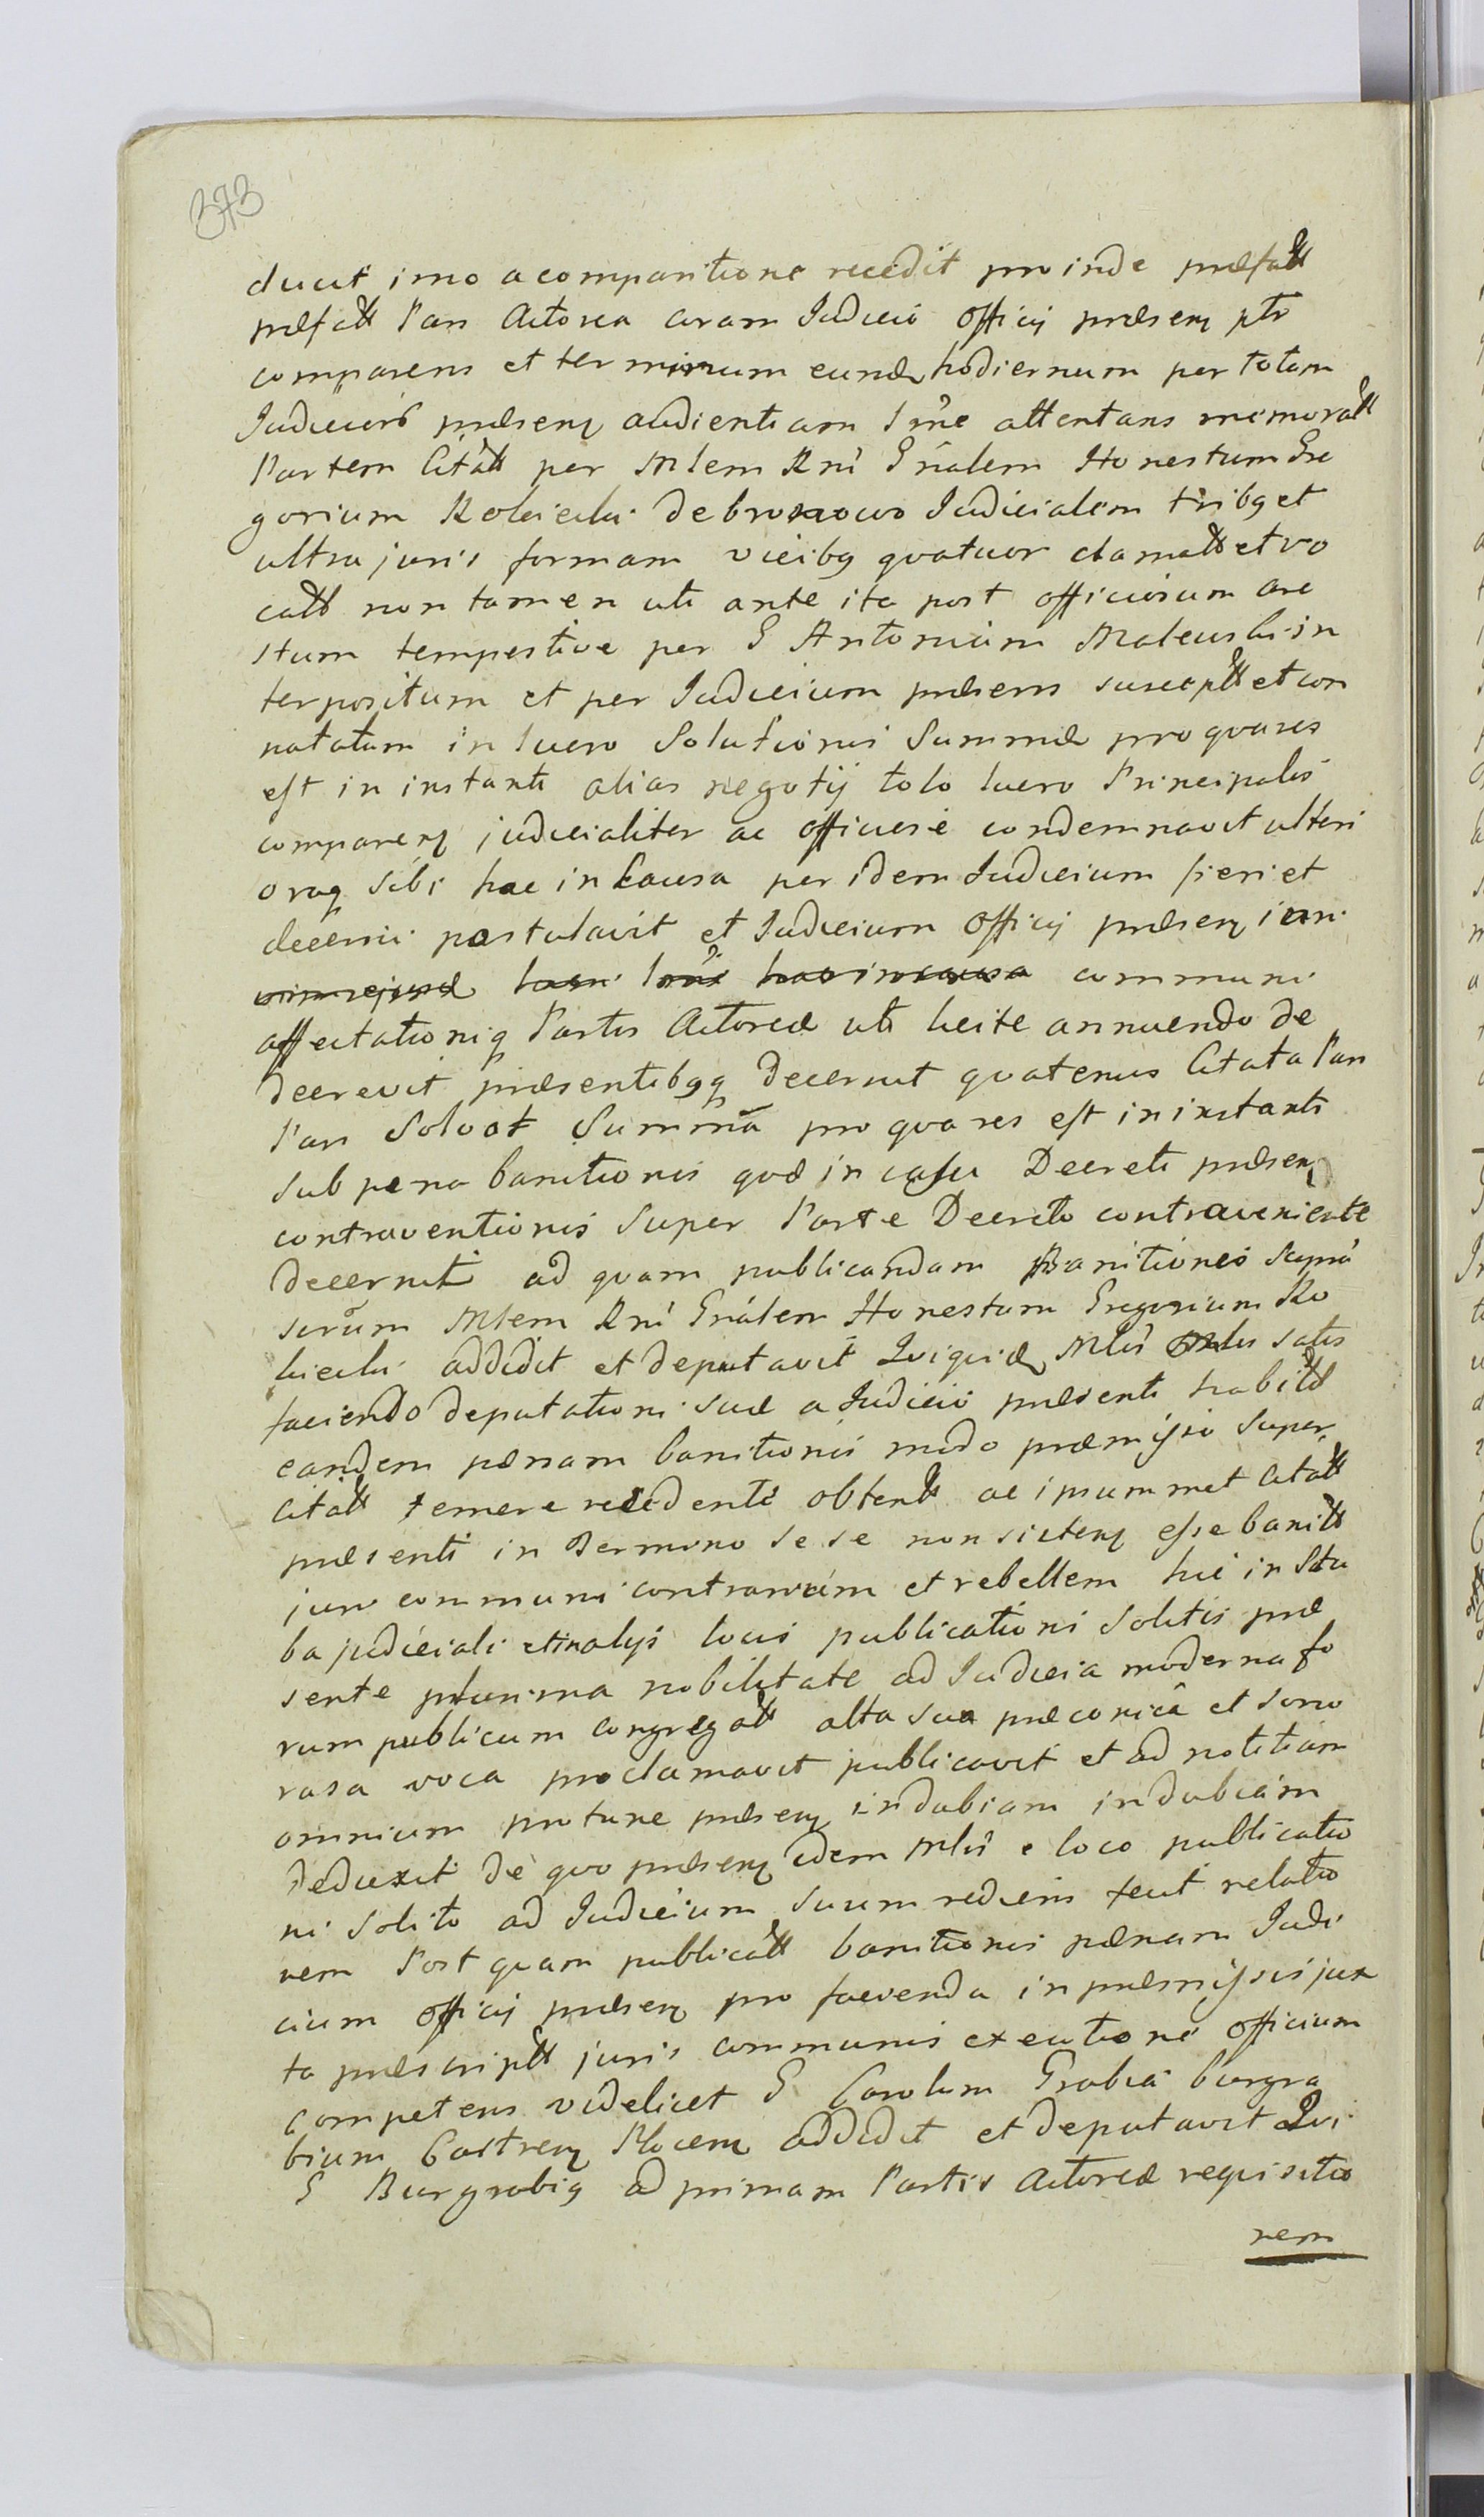 373
ducit imo a comparitione recedit proinde præfatt
præfatt Pars Actorea coram Iudicio Officij præsenţ ptr
comparens et terminum eund hodiernum per totam
Iudicior præsenţ audientiam Sme attentans memoratt
Partem Citatt per Mlem Rni Gnalem Honestum Gre
gorium Kobicki de bronowo Iudicialem tribq et
ultra juris formam vicibq quatuor clamatt et vo
catt non tamen uti ante ita post officiosum are
stum tempestive per G Antonium Mateuski in
terpositum et per Iudicium præsens susceptt et con
notatum in lucro Solutionis Summæ pro qua res
est in instanti alias negotij toto lucro Principalis
comparenţ judicialiter ac officiose condemnavit ulteri
oraq sibi hac in Causa per idem Iudicium fieri et
decerni postulavit et Iudicium Officij præsenţ juri
communi
affectationiq Partis Actoreæ uti licite annuendo de
decrevit præsentibqq decernit quatenus Citata Pars
Pars Solvat Summã pro qua res est in instanti
sub pena banitionis quæ in casu Decreti præsenţ
contraventionis super Parte Decreto contraveniente
decernit ad quam publicandam Banitiones supra
scrum Mlem Rni Gnalem Honestum Gregorium Ko
bicki addidit et deputavit Quiquid Mlis satis
faciendo deputationi suæ a Iudicio præsenti habitt
eandem pænam banitionis modo præmisso super
citatt temere recedente obtentt ac ipsummet Citatt
præsenti in Termino se se non sistenţ esse banitt
juri communi contrarium et rebellem hic in Stu
ba judiciali et in alys locis publicationi solitis præ
sente plurima nobilitate ad Iudicia moderna fo
rum publicum congregatt alta sua præconica et sono
rosa voca proclamavit publicavit et ad notitiam
omnium protunc præsenţ indubiam indubiam
deduxit de quo præsenţ idem Mlis e loco publicatio
ni solito ad Iudicium suum rediens fecit relatio
nem Post quam publicatt banitionis pænam Iudi
cium Officij præsenţ pro facienda in præmissis jux
ta præscriptt juris communis executione Officium
competens videlicet G Carolum Grabia burgra
bium Castrenţ Plocenţ addidit et deputavit Qui
G Burgrabiq ad primam Partis Actoreæ requisitio
nem